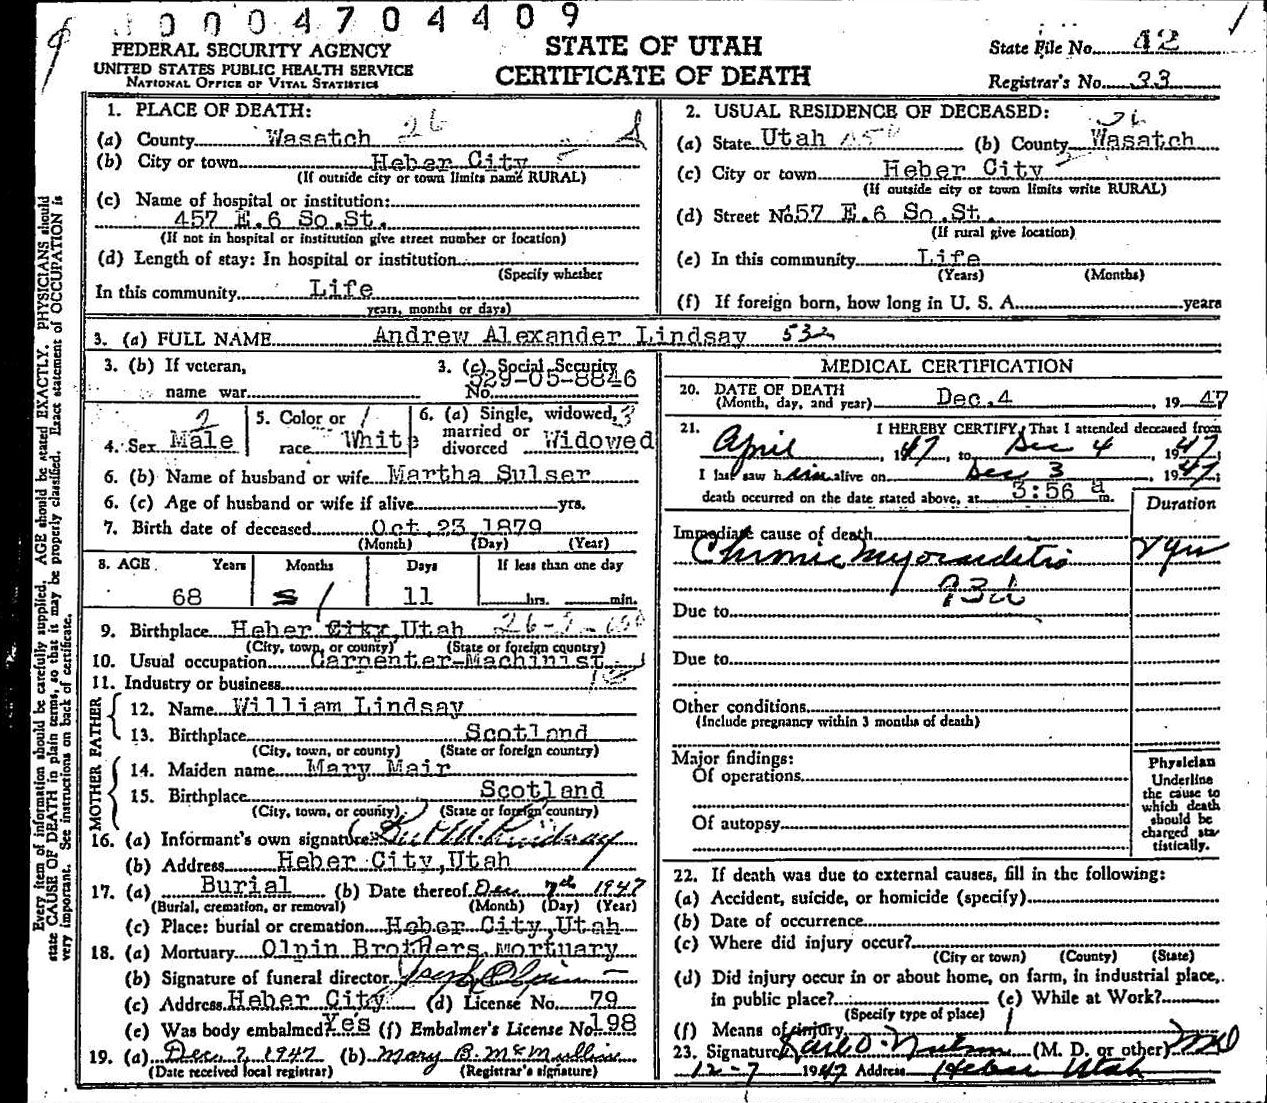 0004704409
FEDERAL SECURITY AGENCY
UNITED STATES PUBLIC HEALTH SERVICE
NATIONAL OFFICE OF VITAL STATISTICS
STATE OF UTAH
CERTIFICATE OF DEATH
State File No. 42
Registrar's No. 33
Every item of information should be carefully supplied. AGE should be stated EXACTLY. PHYSICIANS should
state CAUSE OF DEATH in plain terms, so that it may be properly classified. Exact statement of OCCUPATION is
very important. See instructions on back of certificate.
1. PLACE OF DEATH:
(a) County Wasatch 26
(b) City or town Heber City
(If outside city or town limits name RURAL)
(c) Name of hospital or institution:
457 E.6 So.St.
(If not in hospital or institution give street number or location)
(d) Length of stay: In hospital or institution
(Specify whether
In this community Life
years, months or days)
2. USUAL RESIDENCE OF DECEASED:
(a) State Utah (b) County Wasatch
(c) City or town Heber City
(If outside city or town limits write RURAL)
(d) Street No. 457 E.6 So.St.
(If rural give location)
(e) In this community Life
(Years) (Months)
(f) If foreign born, how long in U. S. A. years
3. (a) FULL NAME Andrew Alexander Lindsay 532
3. (b) If veteran,
name war
3. (c) Social Security
No. 529-05-8846
4. Sex Male
5. Color or
race White
6. (a) Single, widowed,
married or
divorced Widowed
6. (b) Name of husband or wife Martha Sulser
6. (c) Age of husband or wife if alive yrs.
7. Birth date of deceased Oct.23 1879
(Month) (Day) (Year)
8. AGE Years Months Days If less than one day
68 1 11 hrs. min.
9. Birthplace Heber City Utah
(City, town, or county) (State or foreign country)
10. Usual occupation Carpenter-Machinist
11. Industry or business
FATHER
12. Name William Lindsay
13. Birthplace Scotland
(City, town, or county) (State or foreign country)
MOTHER
14. Maiden name Mary Mair
15. Birthplace Scotland
(City, town, or county) (State or foreign country)
16. (a) Informant's own signature Lindsay
(b) Address Heber City,Utah
17. (a) Burial (b) Date thereof Dec 7th 1947
(Burial, cremation, or removal) (Month) (Day) (Year)
(c) Place: burial or cremation Heber City,Utah
18. (a) Mortuary Olpin Brothers Mortuary
(b) Signature of funeral director Joseph Olpin
(c) Address Heber City (d) License No. 79
(e) Was body embalmed Yes (f) Embalmer's License No. 198
19. (a) Dec 7, 1947 (b) Mary B. McMullin
(Date received local registrar) (Registrar's signature)
MEDICAL CERTIFICATION
20. DATE OF DEATH
(Month, day, and year) Dec.4 1947
21. I HEREBY CERTIFY, That I attended deceased from
April, 1947, to Dec 4, 1947;
I last saw him alive on Dec 3 1947;
death occurred on the date stated above, at 3:56 a m.
Duration
Immediate cause of death
Chronic Myocarditis 2 yrs
93d
Due to
Due to
Other conditions
(Include pregnancy within 3 months of death)
Major findings:
Of operations
Of autopsy
Physician
Underline
the cause to
which death
should be
charged sta-
tistically.
22. If death was due to external causes, fill in the following:
(a) Accident, suicide, or homicide (specify)
(b) Date of occurrence
(c) Where did injury occur?
(City or town) (County) (State)
(d) Did injury occur in or about home, on farm, in industrial place,
in public place? (e) While at Work?
(Specify type of place)
(f) Means of injury
23. Signature Karl O. Nielson (M. D. or other) MD
12-7 1947 Address Heber Utah